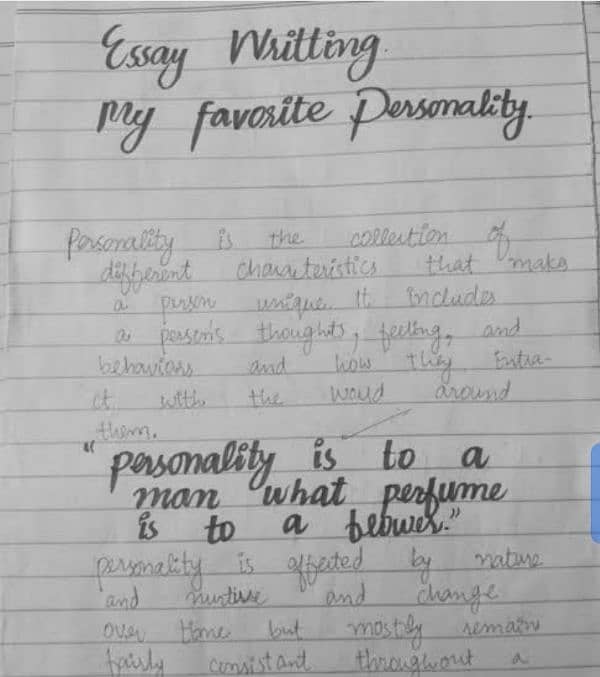 Essay Writting.
My favorite Personality.
Personality is the collection of
different characteristics that make
a person unique. It includes
a person's thoughts, feeling, and
behaviors and how they intra-
ct with the world around
them.
"personality is to a
man what perfume
is to a flower."
personality is affected by nature
and nurture and change
over time but mostly remain
fairly consistant throughout a